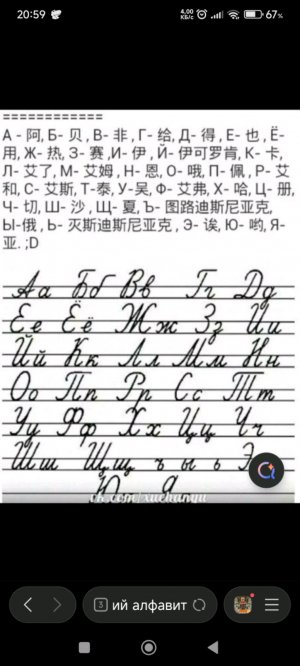 20:59
4,00
КБ/с
67%
============
А - 阿, Б- 贝 , В- 非 , Г- 给, Д- 得 , Е - 也 , Ё-
用, Ж- 热, З- 赛 ,И- 伊 , Й- 伊可罗肯, К- 卡,
Л- 艾了, М- 艾姆 , Н- 恩, О- 哦, П- 佩 , Р- 艾
和, С- 艾斯, Т-泰, У-吴, Ф- 艾弗, Х- 哈, Ц- 册,
Ч- 切, Ш- 沙 , Щ- 夏, Ъ- 图路迪斯尼亚克,
Ы-俄 , Ь- 灭斯迪斯尼亚克 , Э- 诶, Ю- 哟, Я-
亚. ;D
Аа Бб Вв Гг Дд
Ее Ёё Жж Зз Ии
Йй Кк Лл Мм Нн
Оо Пп Рр Сс Тт
Уу Фф Хх Цц Чч
Шш Щщ ъ ы ь Э
Ю Я
vk.com/xuehanyu
3 ий алфавит